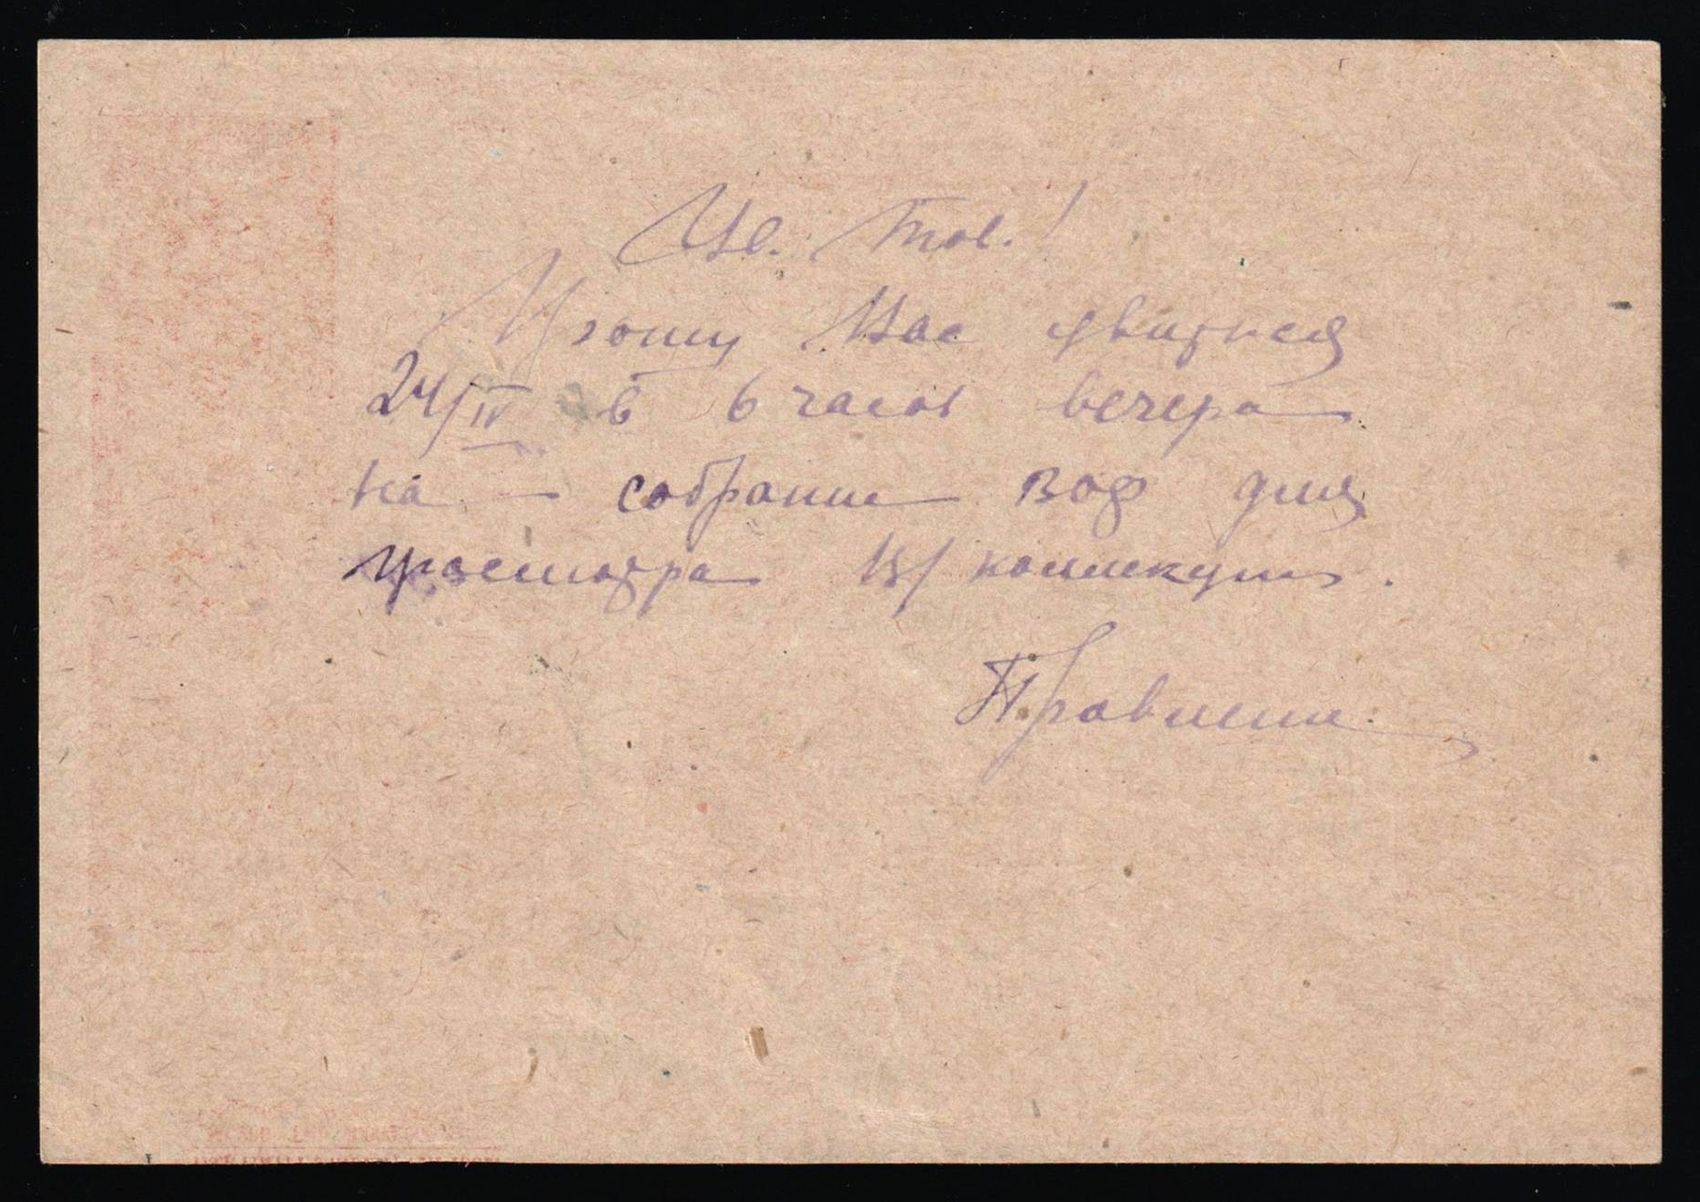 Ув. тов.!
Прошу Вас явиться
24/IV в 6 часов вечера
на собрание ВОФ для
просмотра к/коллекции.
Правление